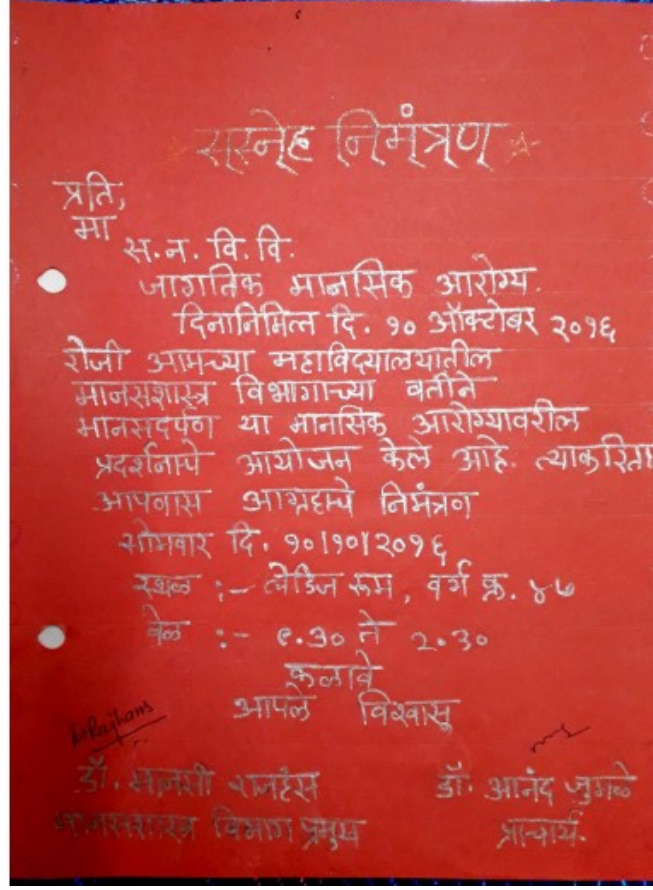 सस्नेह निमंत्रण
प्रति,
मा
स.न. वि. वि.
जागतिक मानसिक आरोग्य.
दिनानिमित्त दि. १० ऑक्टोबर २०१६
रोजी आमच्या महाविद्यालयातील
मानसशास्त्र विभागाच्या वतीने
मानसदर्पण या मानसिक आरोग्यावरील
प्रदर्शनाचे आयोजन केले आहे. त्याकरिता
आपणास आग्रहाचे निमंत्रण
सोमवार दि. १०|१०|२०१६
स्थळ :- लेडिज रूम, वर्ग क्र. ४७
वेळ :- ९.३० ते २.३०
कळावे
आपले विश्वासू
Rajhans
डॉ. मानसी राजहंस डॉ. आनंद जुगळे
मानसशास्त्र विभाग प्रमुख प्राचार्य.